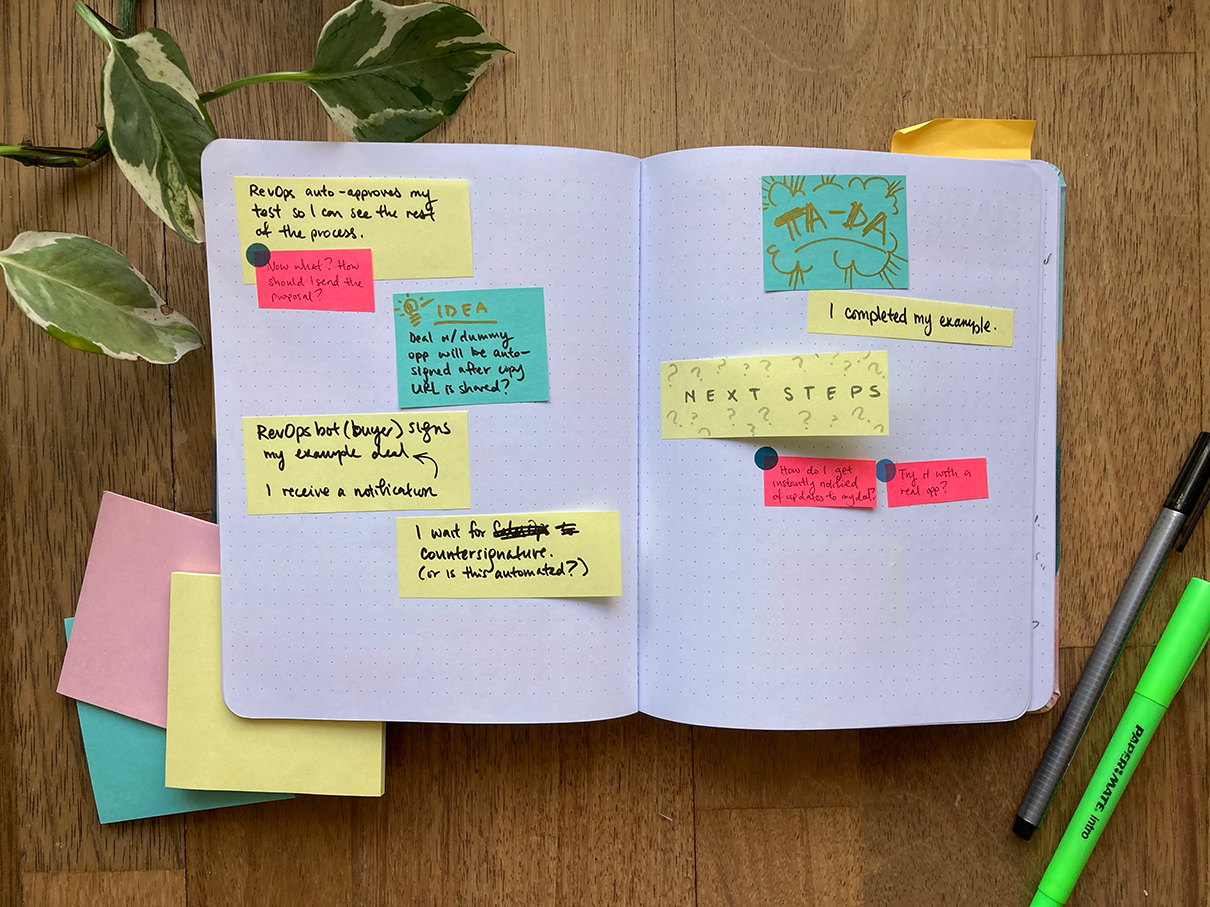 RevOps auto-approves my
test so I can see the rest
of the process.
Now what? How
should I send the
proposal?
IDEA
Deal w/dummy
opp will be auto-
signed after copy
URL is shared?
RevOps bot (buyer) signs
my example deal
I receive a notification
I wait for
countersignature.
(or is this automated?)
TA-DA
I completed my example.
? ? ? ? ? ? ?
NEXT STEPS
? ? ? ? ? ? ?
How do I get
instantly notified
of updates to my deal?
Try it with a
real opp?
PAPER:MATE intro